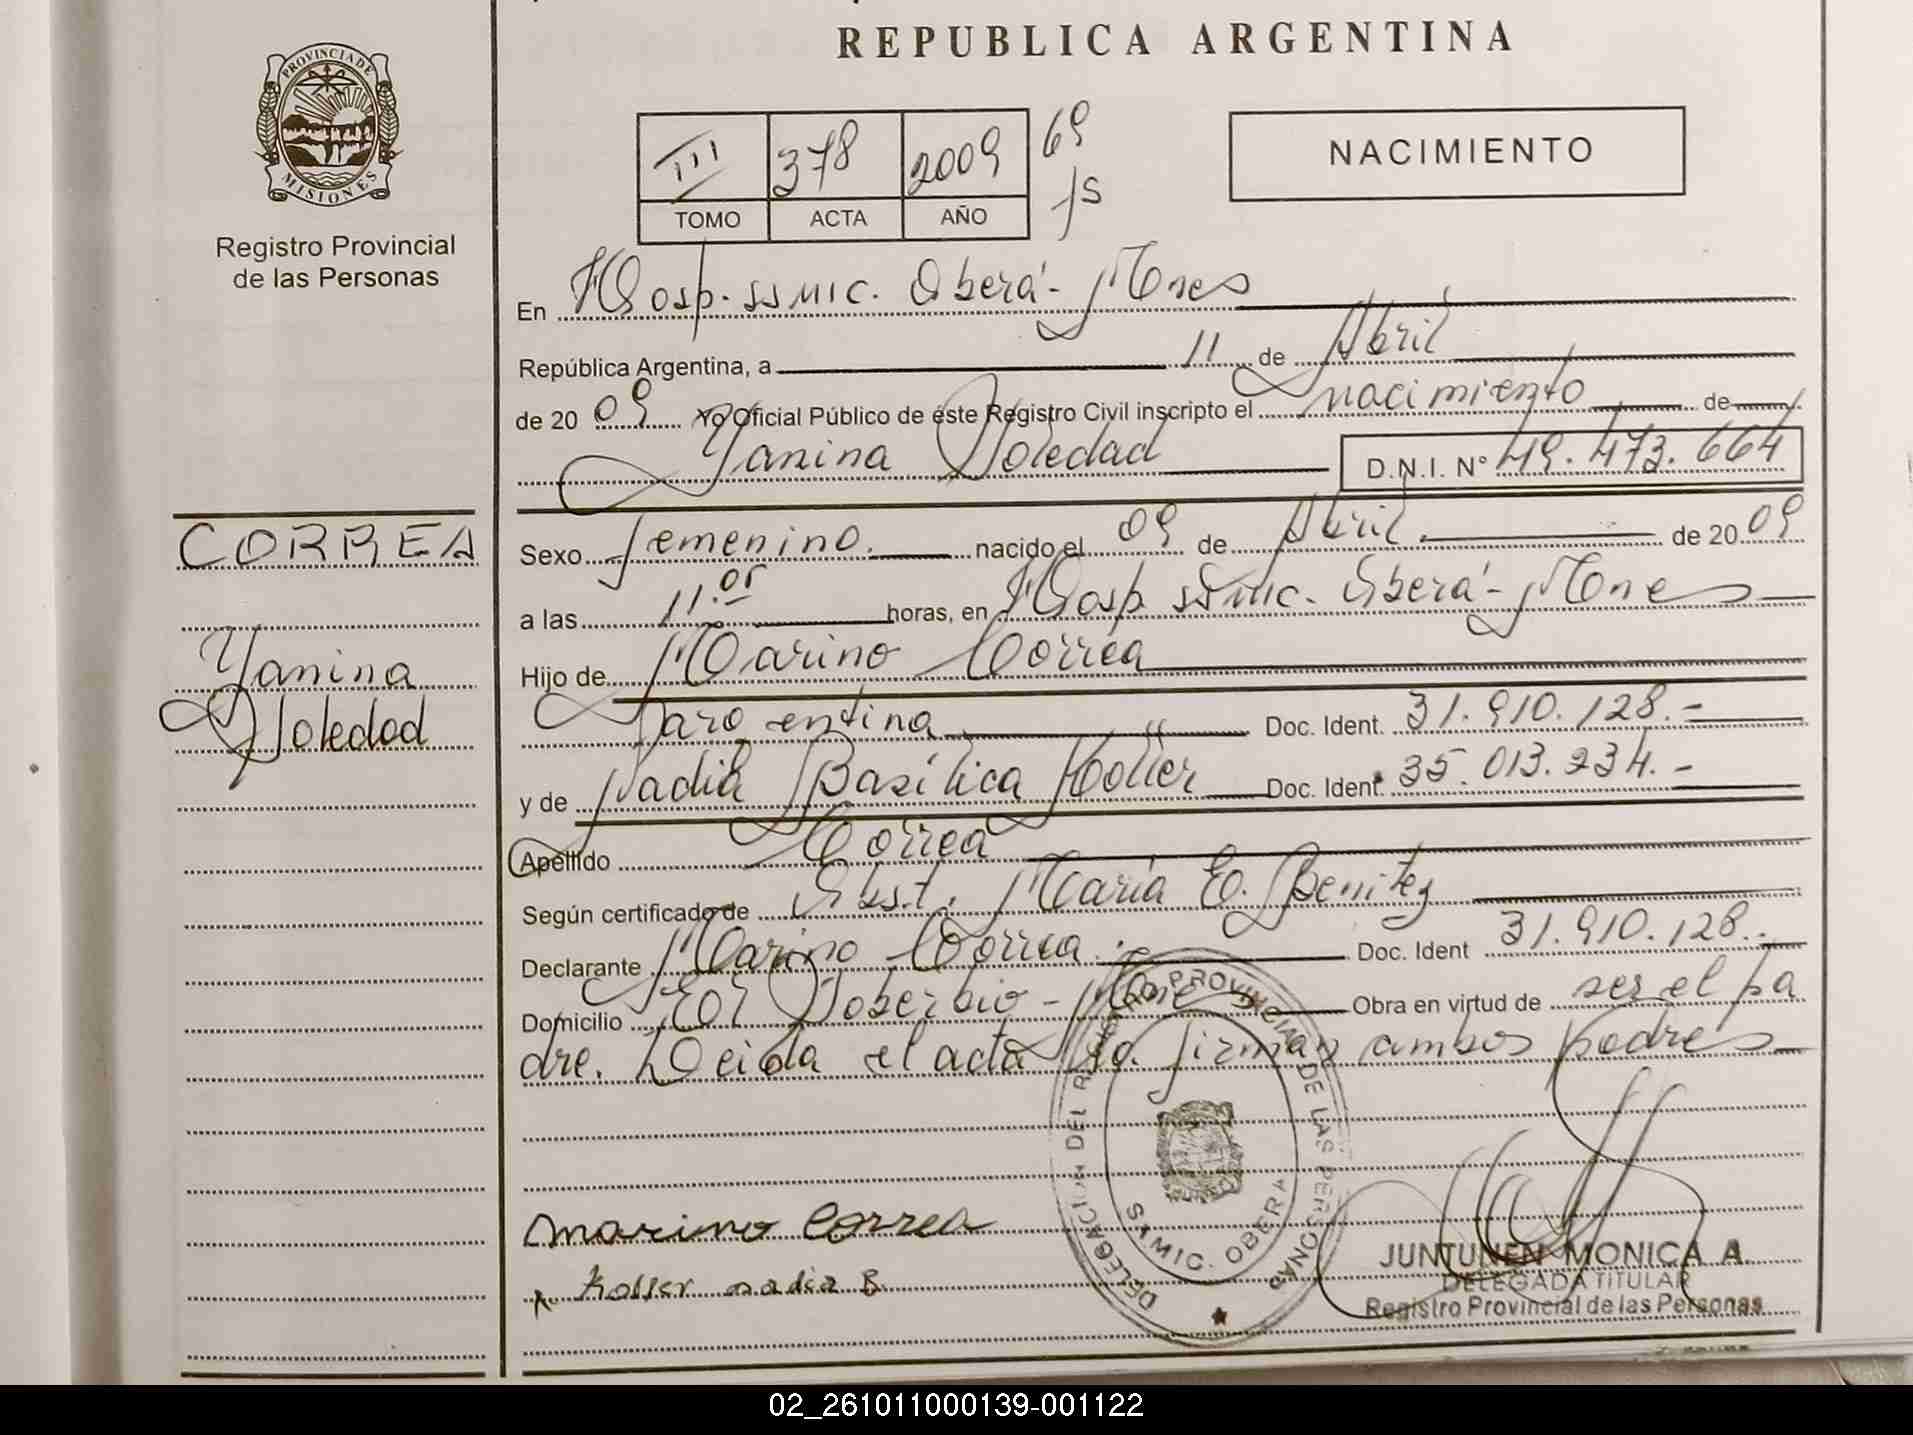 REPUBLICA ARGENTINA
PROVINCIA DE
MISIONES
Registro Provincial
de las Personas
III 378 2009 69
TOMO ACTA AÑO
NACIMIENTO
En Hosp. SSMIC. Oberá - Mnes
República Argentina, a 11 de Abril
de 20 09 Yo Oficial Público de éste Registro Civil inscripto el nacimiento de
Yanina Soledad D.N.I. N° 49.473.664
CORREA
Yanina
Soledad
Sexo femenino. nacido el 09 de Abril. de 20 09
a las 11.05 horas, en Hosp. SSMIC. Oberá - Mnes
Hijo de Marino Correa
argentina Doc. Ident. 31.910.128.-
y de Nadia Basílica Koller Doc. Ident. 35.013.234.-
Apellido Correa
Según certificado de Obst. María E. Benitez
Declarante Marino Correa. Doc. Ident 31.910.128.-
Domicilio Soberbio - Mnes Obra en virtud de ser el pa
dre. Leida el acta la firman ambos padres
marino Correa
Koller nadia B
DELEGACION DEL REGISTRO PROVINCIAL DE LAS PERSONAS
SAMIC. OBERA
JUNTUNEN MONICA A.
DELEGADA TITULAR
Registro Provincial de las Personas
02_261011000139-001122